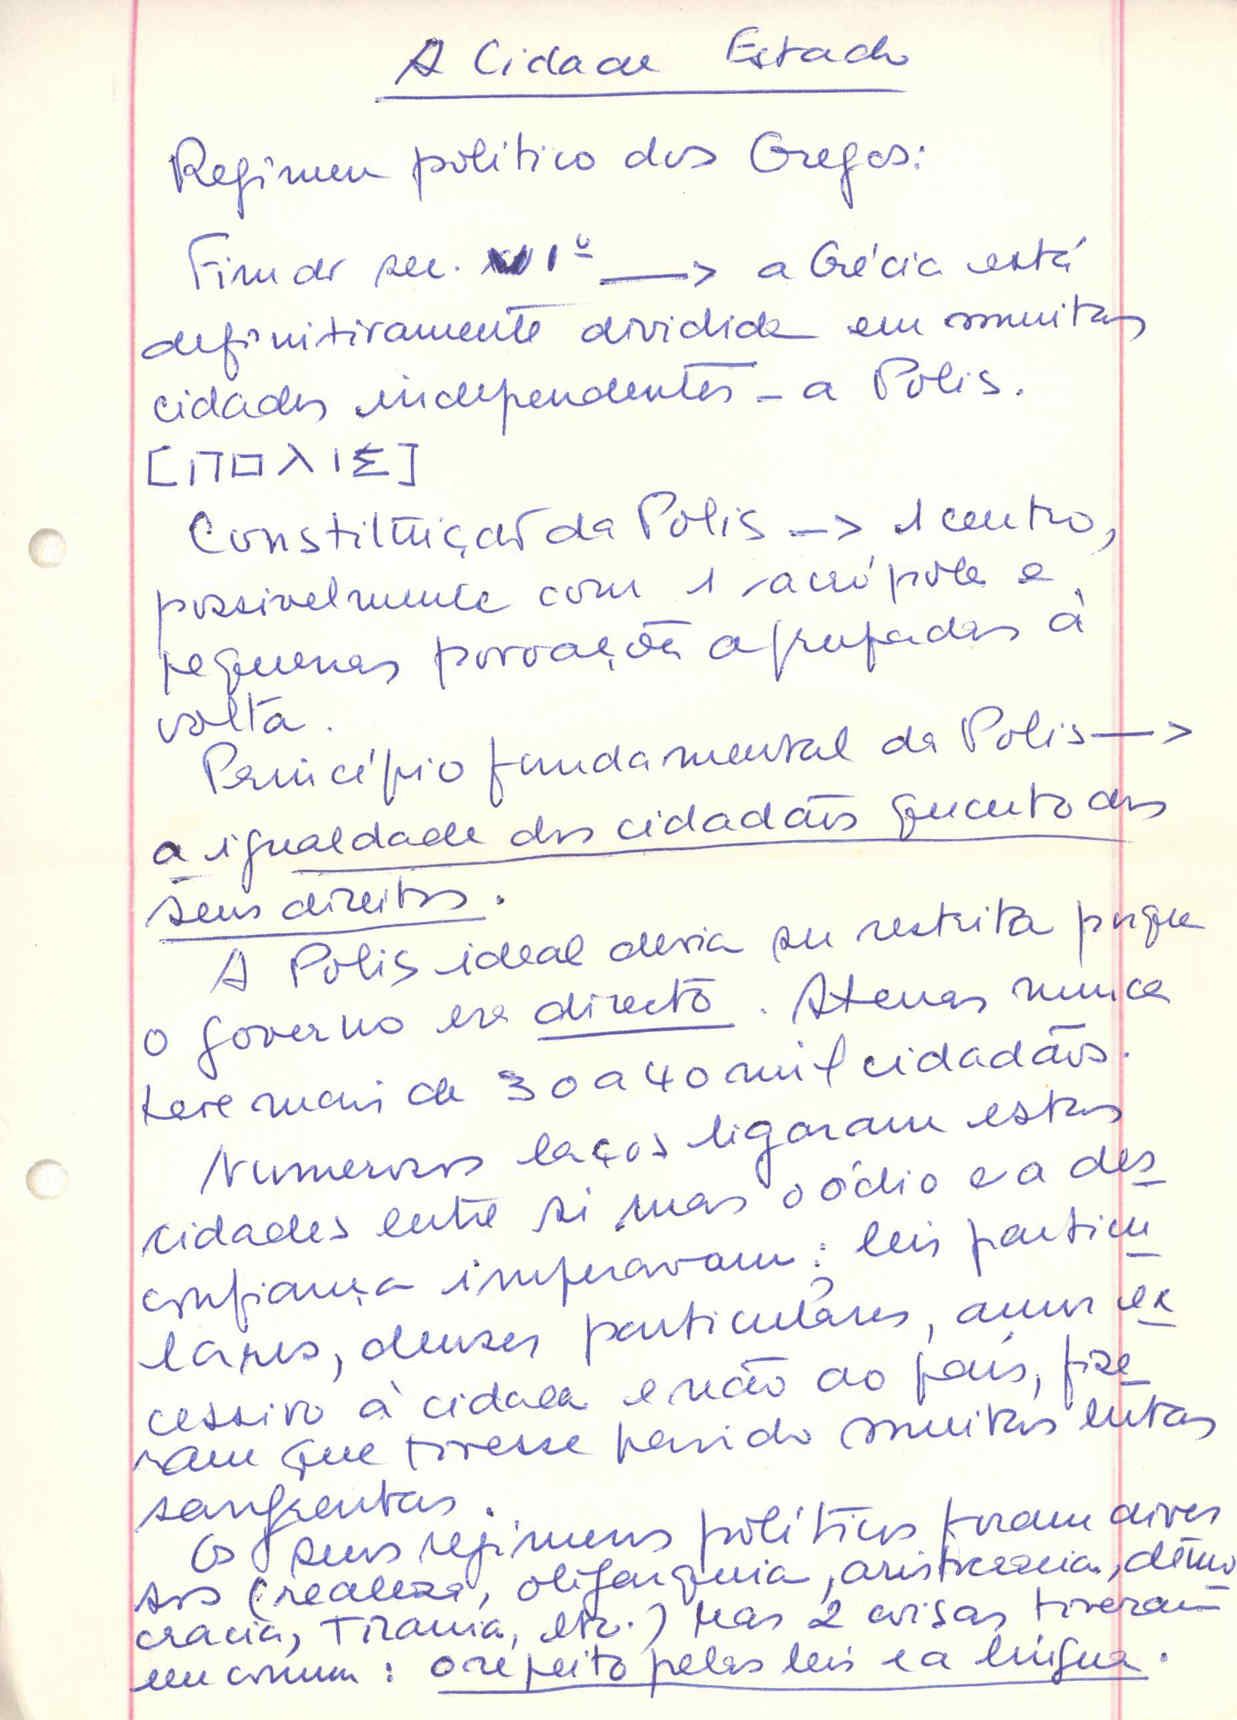 A Cidade Estado
Regimen político dos Gregos:
Fim do sec. VIº → a Grécia está
definitivamente dividida em muitas
cidades independentes - a Polis.
[ΠΟλΙΣ]
Constituição da Polis → 1 centro,
possivelmente com 1 acrópole e
pequenas povoações agrupadas à
volta.
Princípio fundamental da Polis →
a igualdade dos cidadãos quanto aos
seus direitos.
A Polis ideal devia ser restrita porque
o governo era directo. Atenas nunca
teve mais de 30 a 40 mil cidadãos.
Numerosos laços ligaram estas
cidades entre si mas o ódio e a des
confiança imperavam: leis particu
lares, deuses particulares, amor ex
cessivo à cidade e não ao país, fize
ram que tivesse havido muitas lutas
sangrentas.
Os seus regimens políticos foram diver
sos (realeza, oligarquia, aristocracia, demo
cracia, Tirania, etc.) Mas 2 coisas tiveram
em comum: o respeito pelas leis e a língua.